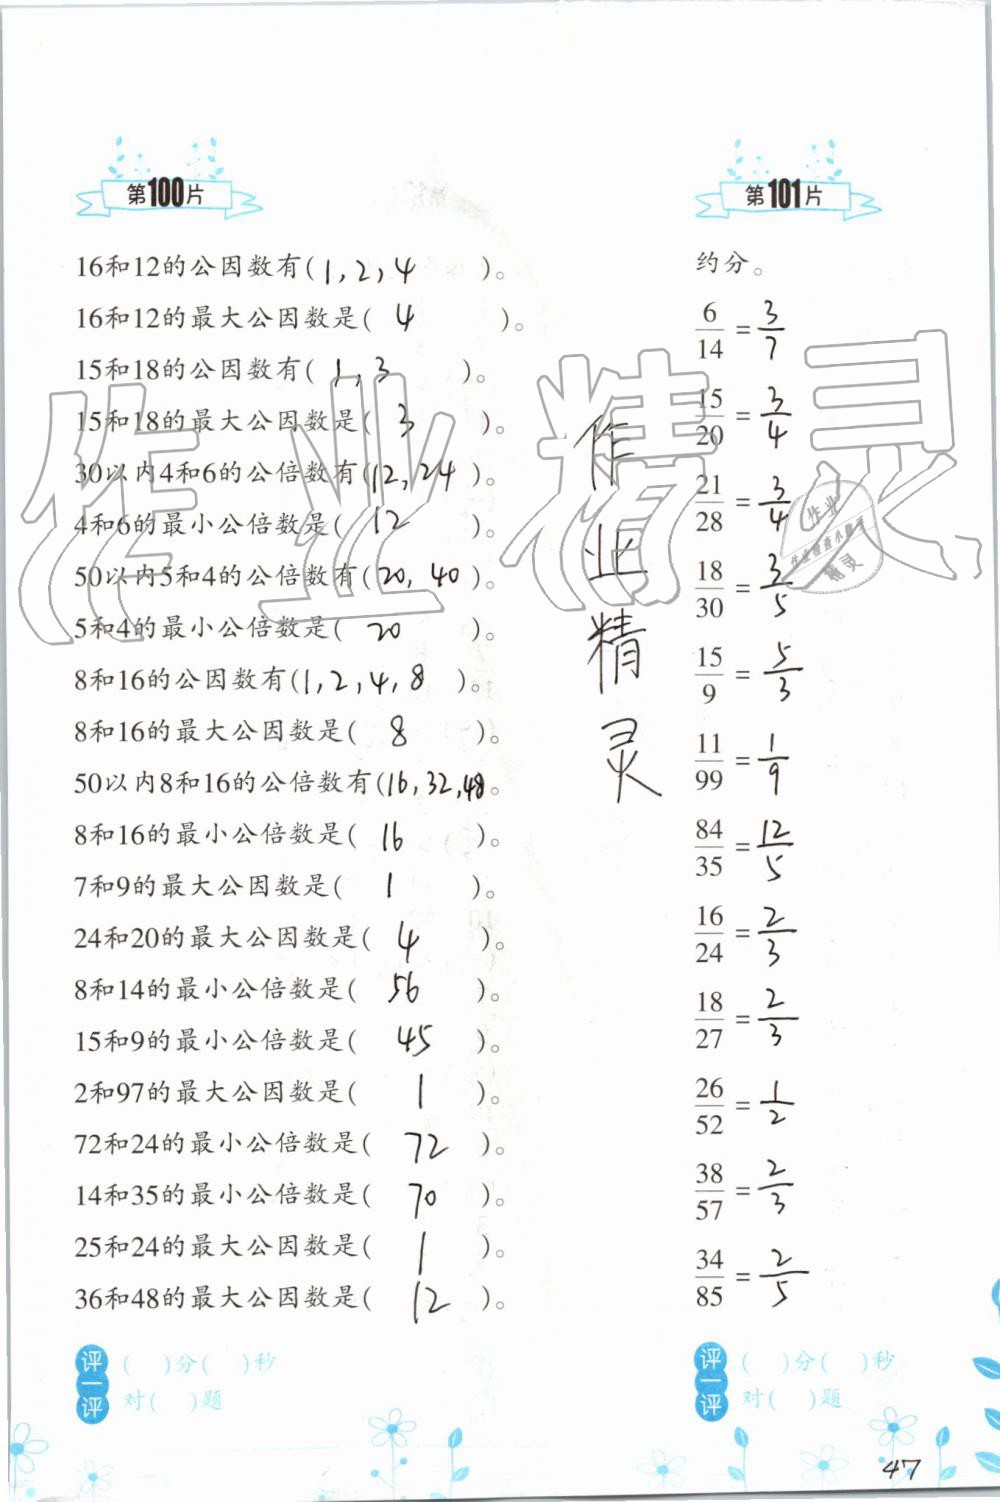 第100片
16和12的公因数有(1,2,4)。
16和12的最大公因数是(4)。
15和18的公因数有(1,3)。
15和18的最大公因数是(3)。
30以内4和6的公倍数有(12,24)。
4和6的最小公倍数是(12)。
50以内5和4的公倍数有(20,40)。
5和4的最小公倍数是(20)。
8和16的公因数有(1,2,4,8)。
8和16的最大公因数是(8)。
50以内8和16的公倍数有(16,32,48。
8和16的最小公倍数是(16)。
7和9的最大公因数是(1)。
24和20的最大公因数是(4)。
8和14的最小公倍数是(56)。
15和9的最小公倍数是(45)。
2和97的最大公因数是(1)。
72和24的最小公倍数是(72)。
14和35的最小公倍数是(70)。
25和24的最大公因数是(1)。
36和48的最大公因数是(12)。
评一评
( )分( )秒
对( )题
作业精灵
作业精灵
第101片
约分。
6/14=3/7
15/20=3/4
21/28=3/4
18/30=3/5
15/9=5/3
11/99=1/9
84/35=12/5
16/24=2/3
18/27=2/3
26/52=1/2
38/57=2/3
34/85=2/5
作业
精灵
评一评
( )分( )秒
对( )题
47